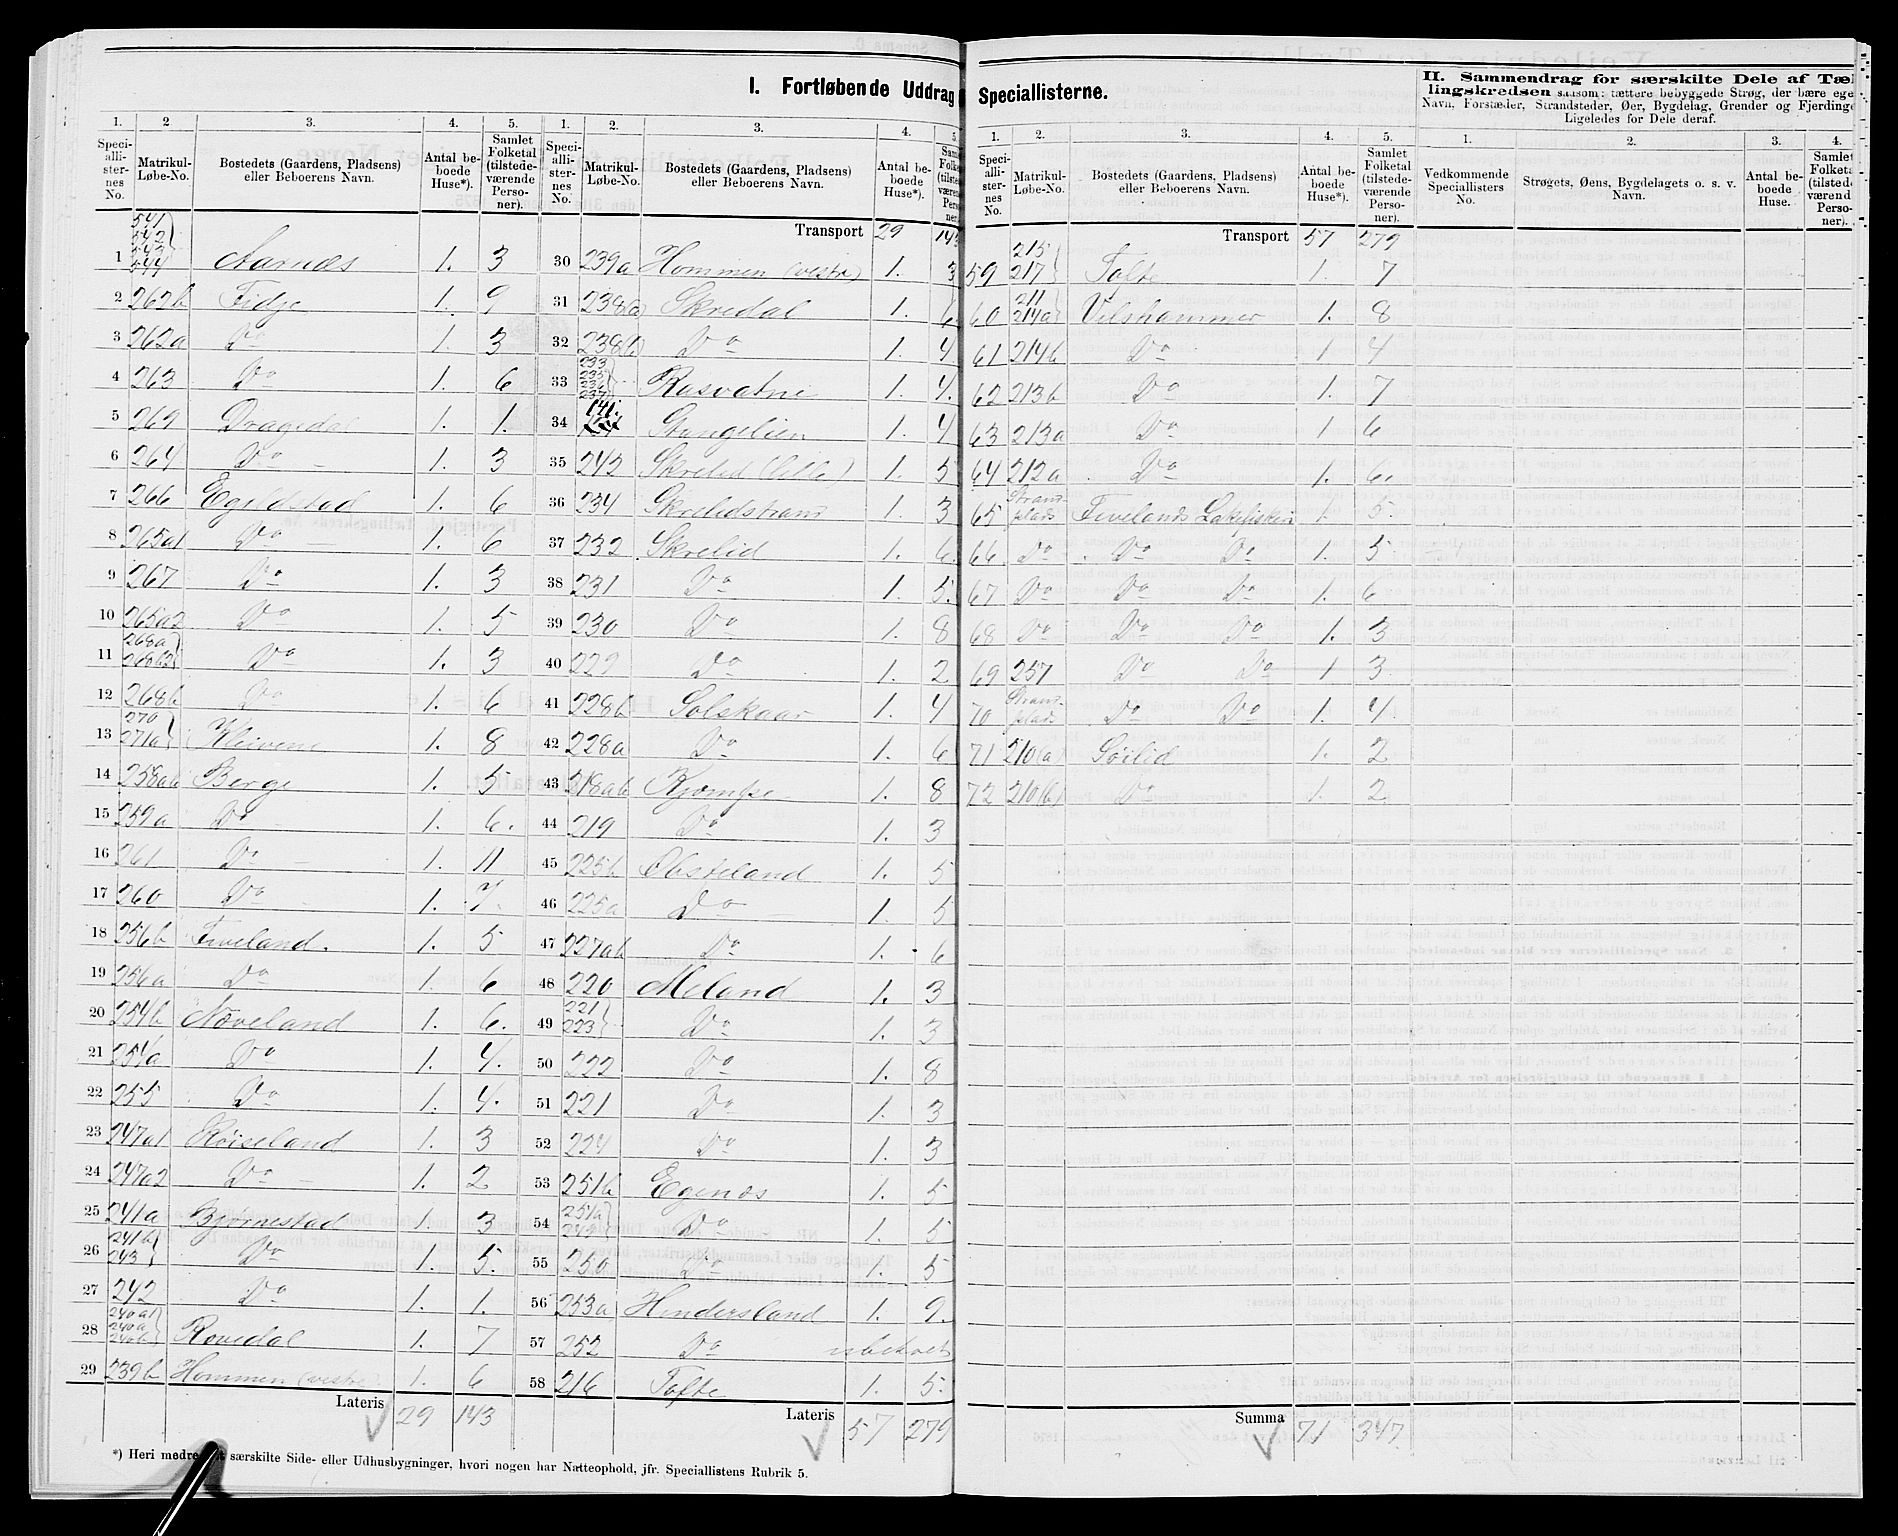 I. Fortløbende Uddrag
Speciallisterne.
II. Sammendrag for særskilte Dele af Tæl-
lingskredsen saasom: tættere bebyggede Strøg, der bære ege
Navn, Forstæder, Strandsteder, Øer, Bygdelag, Grender og Fjerdinge
Ligeledes for Dele deraf.
1. 2 3. 4. 5.
Speciallisternes No. Matrikul-Løbe-No. Bostedets (Gaardens, Pladsens) eller Beboerens Navn. Antal beboede Huse*). Samlet Folketal (tilstedeværende Personer).
541 542 543 544
1 Aarnæs 1. 3
2 262b Fidje 1. 9
3 262a Do 1. 3
4 263 Do 1. 6
5 269 Dragedal 1. 1.
6 264 Do 1. 3
7 266 Egeldstad 1. 6
8 265a1 Do 1. 6
9 267 Do 1. 3
10 265a2 Do 1. 5
11 268a 268b2 Do 1. 3
12 268b Do 1. 6
13 270 271a Kleivene 1. 8
14 258ab Berge 1. 5
15 259a Do 1. 6.
16 261 Do 1. 11
17 260 Do 1. 7.
18 256b Fiveland. 1. 5
19 256a Do 1. 6
20 254b Næveland 1. 6.
21 254a Do 1. 4.
22 255 Do 1. 4.
23 247a1 Røiseland 1. 3
24 247a2 Do 1. 2
25 241a Bjørnestad 1. 3
26 241b 243 Do 1. 5.
27 242 Do 1. 1.
28 240a1 240a 240b Rovedal 1. 7
29 239b Hommen (vestre) 1. 6
Lateris 29 143
1. 2. 3. 4. 5.
Speciallisternes No. Matrikul-Løbe-No. Bostedets (Gaardens, Pladsens) eller Beboerens Navn. Antal beboede Huse*). Samlet Folketal (tilstedeværende Personer).
Transport 29 143
30 239a Hommen (vestre) 1. 3
31 238(a) Skredal 1. 6.
32 238(b) Do 1. 4.
33 233 235 236 237 Rasvatne 1. 4.
34 141. Stangelien 1. 4
35 242 Skrelid (lille) 1. 5
36 234 Skrelidstrand 1. 3
37 232 Skrelid 1. 6.
38 231 Do 1. 5.
39 230 Do 1. 8
40 229 Do 1. 2
41 228b Solskaar 1. 4
42 228a Do 1. 6
43 218ab 1. 8
44 219 Do 1. 3
45 225b Obsteland 1. 5
46 225a Do 1. 5
47 227ab Do 1. 6
48 220 Meland 1. 3
49 221 223 Do 1. 3
50 222 Do 1. 8
51 221 Do 1. 3
52 224 Do 1. 3
53 251b Egenæs 1. 5
54 251a 249 Do 1. 5
55 250 Do 1. 5
56 253a Hindersland 1. 9.
57 252 Do ubeboet
58 216 Tofte 1. 5.
Lateris 57 279
*) Heri medre særskilte Side- eller Udhusbygninger, hvori nogen har Natteophold, jfr. Speciallistens Rubrik 5.
1. 2. 3. 4. 5.
Speciallisternes No. Matrikul-Løbe-No. Bostedets (Gaardens, Pladsens) eller Beboerens Navn. Antal beboede Huse*). Samlet Folketal (tilstedeværende Personer).
Transport 57 279
59 215 217 Tofte 1. 7
60 211 214a Vilshammer 1. 8
61 214b Do 1 4
62 213b Do 1. 7
63 213a Do 1 6
64 212a Do 1. 6.
65 Strandplads Fivelands 1. 5.
66 Do Do Do 1. 5
67 Do Do Do 1. 6
68 Do Do Do 1. 3
69 257 Do Do 1 3
70 Strandplads Do Do 1. 4.
71 210(a) Sørlid 1. 2
72 210(b) Do 1. 2
Summa 71 347.
1. 2. 3. 4.
Vedkommende Speciallisters No. Strøgets, Øens, Bygdelagets o. s. v. Navn. Antal beboede Huse. Samlet Folketal (tilstedeværende Personer).